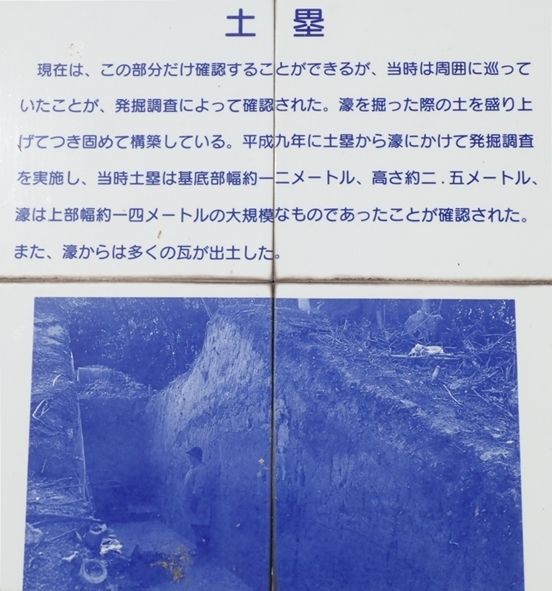 土塁
現在は、この部分だけ確認することができるが、当時は周囲に巡って
いたことが、発掘調査によって確認された。濠を掘った際の土を盛り上
げてつき固めて構築している。平成九年に土塁から濠にかけて発掘調査
を実施し、当時土塁は基底部幅約一二メートル、高さ約二．五メートル、
濠は上部幅約一四メートルの大規模なものであったことが確認された。
また、濠からは多くの瓦が出土した。